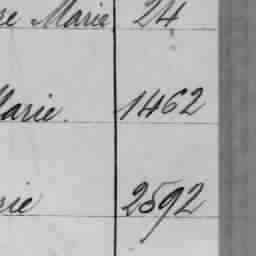 Marie 24
Marie. 1462
2592